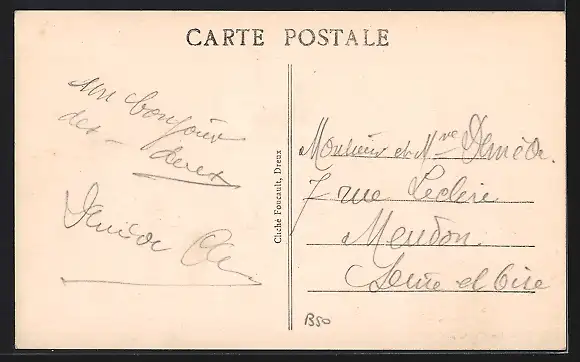 CARTE POSTALE
un bonjour
des -
Cliché Foucault, Dreux
Monsieur et Mme
7 rue Leclerc
Meudon
Seine et Oise
B50